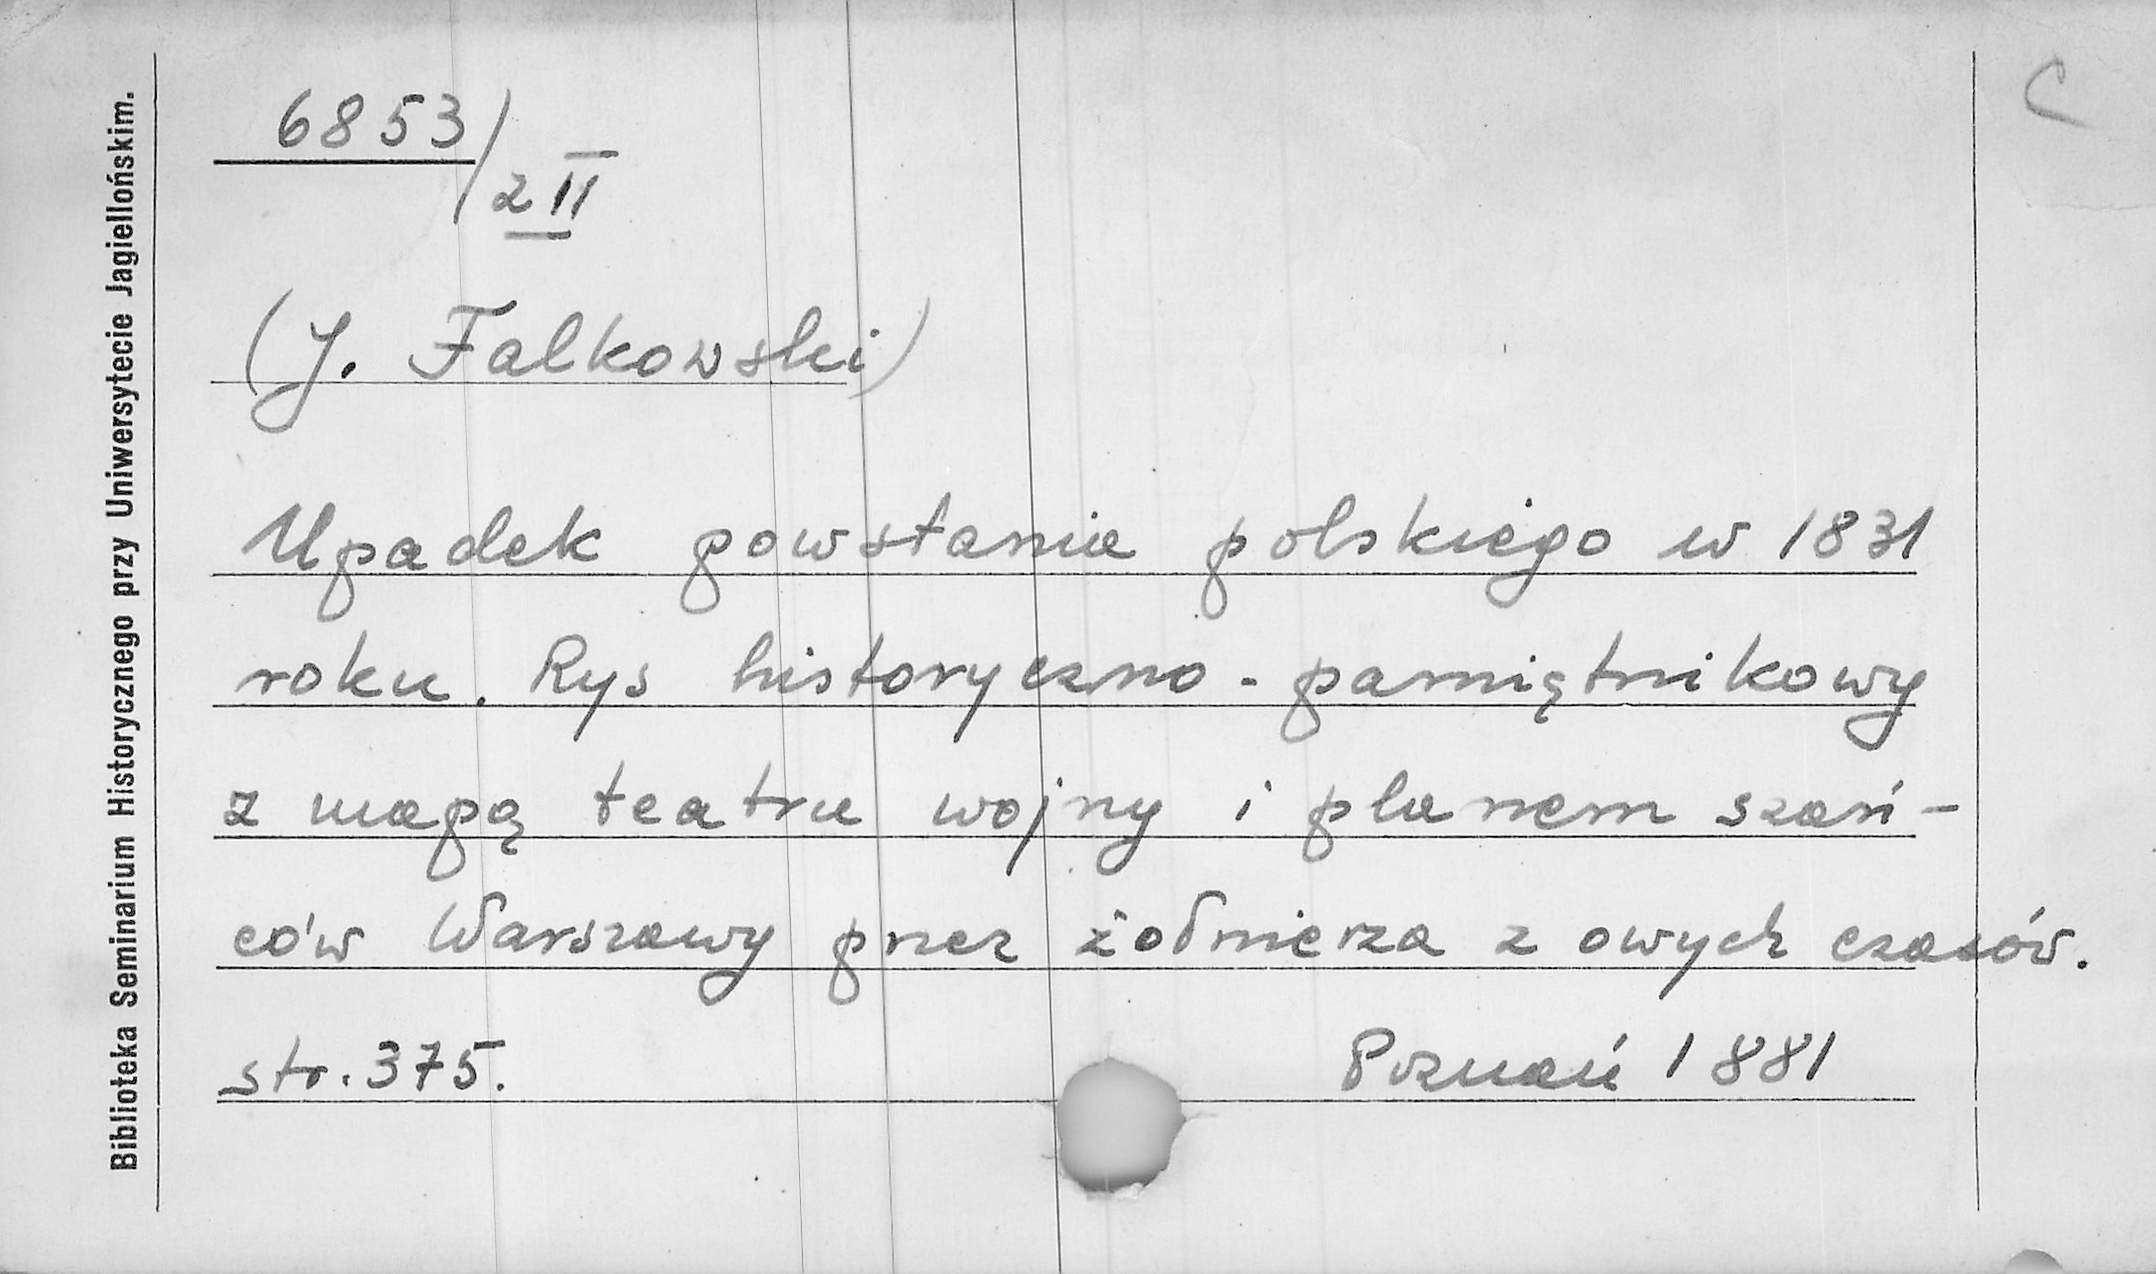 Biblioteka Seminarium Historycznego przy Uniwersytecie Jagiellońskim.
C
6853/
2 II
(J. Falkowski)
Upadek powstania polskiego w 1831
roku. Rys historyczno-pamiętnikowy
z mapą teatru wojny i planem szań-
ców Warszawy przez żołnierza z owych czasów.
str. 375. Poznań 1881